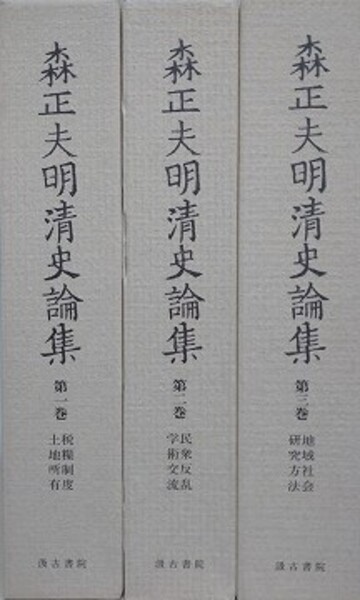 森正夫明清史論集
第一巻
税糧制度
土地所有
汲古書院
森正夫明清史論集
第二巻
民衆反乱
学術交流
汲古書院
森正夫明清史論集
第三巻
地域社会
研究方法
汲古書院